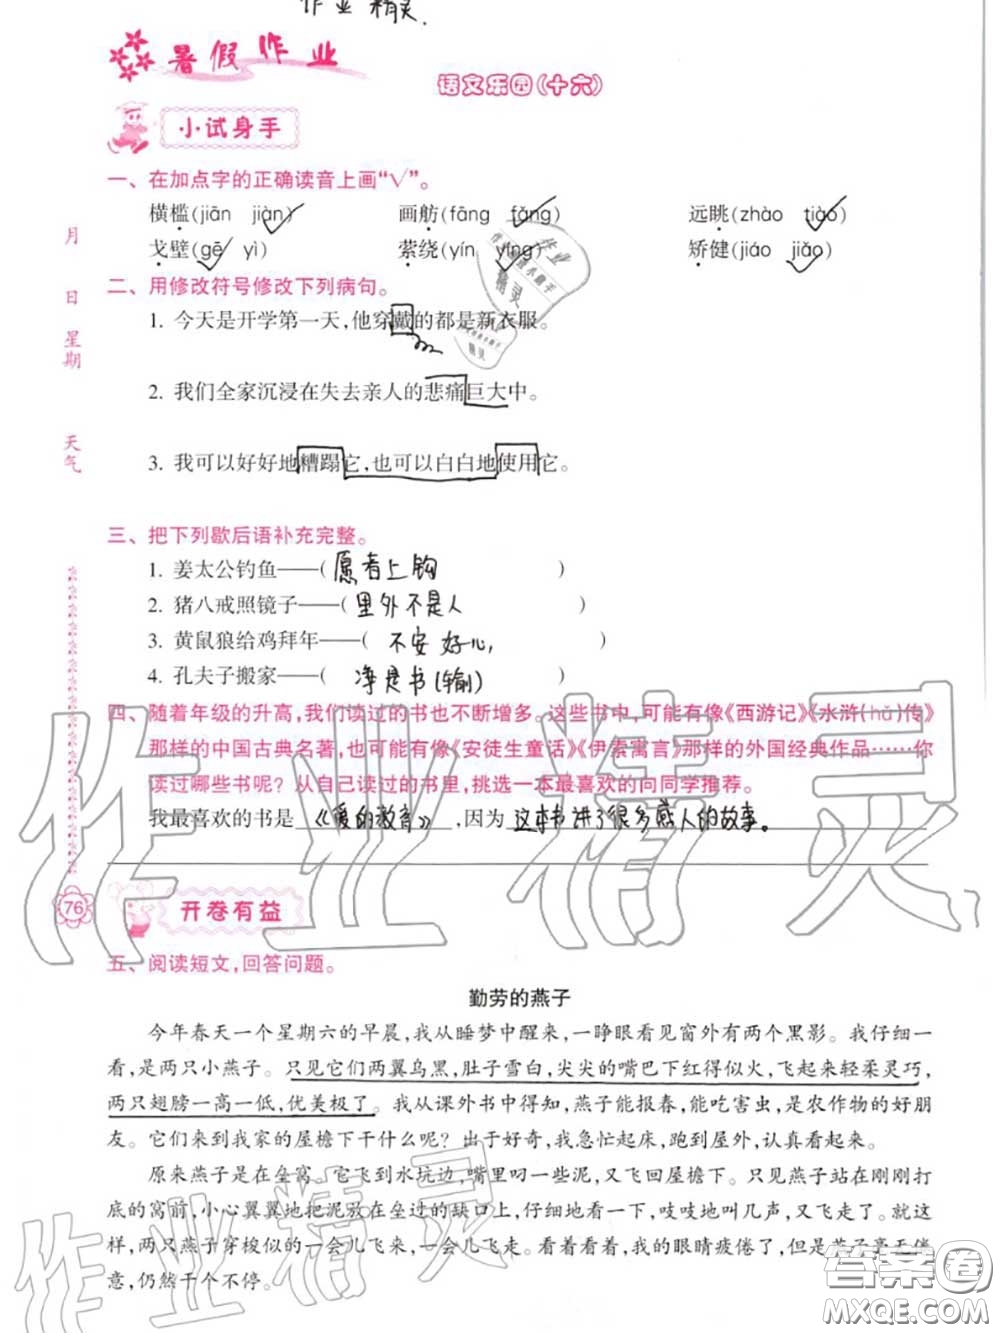 作业精灵.
暑假作业
语文乐园(十六)
小试身手
一、在加点字的正确读音上画“√”。
横槛(jiān jiàn) 画舫(fāng fǎng) 远眺(zhào tiào)
戈壁(gē yì) 萦绕(yín yíng) 矫健(jiáo jiǎo)
二、用修改符号修改下列病句。
1. 今天是开学第一天,他穿戴的都是新衣服。
2. 我们全家沉浸在失去亲人的悲痛巨大中。
3. 我可以好好地糟蹋它,也可以白白地使用它。
三、把下列歇后语补充完整。
1. 姜太公钓鱼——(愿者上钩)
2. 猪八戒照镜子——(里外不是人)
3. 黄鼠狼给鸡拜年——(不安好心)
4. 孔夫子搬家——(净是书(输))
四、随着年级的升高,我们读过的书也不断增多。这些书中,可能有像《西游记》《水浒(hǔ)传》
那样的中国古典名著,也可能有像《安徒生童话》《伊索寓言》那样的外国经典作品……你
读过哪些书呢?从自己读过的书里,挑选一本最喜欢的向同学推荐。
我最喜欢的书是《爱的教育》,因为这本书讲了很多感人的故事。
开卷有益
五、阅读短文,回答问题。
勤劳的燕子
今年春天一个星期六的早晨,我从睡梦中醒来,一睁眼看见窗外有两个黑影。我仔细一
看,是两只小燕子。只见它们两翼乌黑,肚子雪白,尖尖的嘴巴下红得似火,飞起来轻柔灵巧,
两只翅膀一高一低,优美极了。我从课外书中得知,燕子能报春,能吃害虫,是农作物的好朋
友。它们来到我家的屋檐下干什么呢?出于好奇,我急忙起床,跑到屋外,认真看起来。
原来燕子是在垒窝。它飞到水坑边,嘴里叼一些泥,又飞回屋檐下。只见燕子站在刚刚打
底的窝前,小心翼翼地把泥放在垒过的缺口上,仔细地看一下,吱吱地叫几声,又飞走了。就这
样,两只燕子穿梭似的一会儿飞来,一会儿飞走。看着看着,我的眼睛疲倦了,但是燕子毫无倦
意,仍然干个不停。
月
日
星期
天气
76
作业精灵
作业精灵
答案圈
MXQE.COM